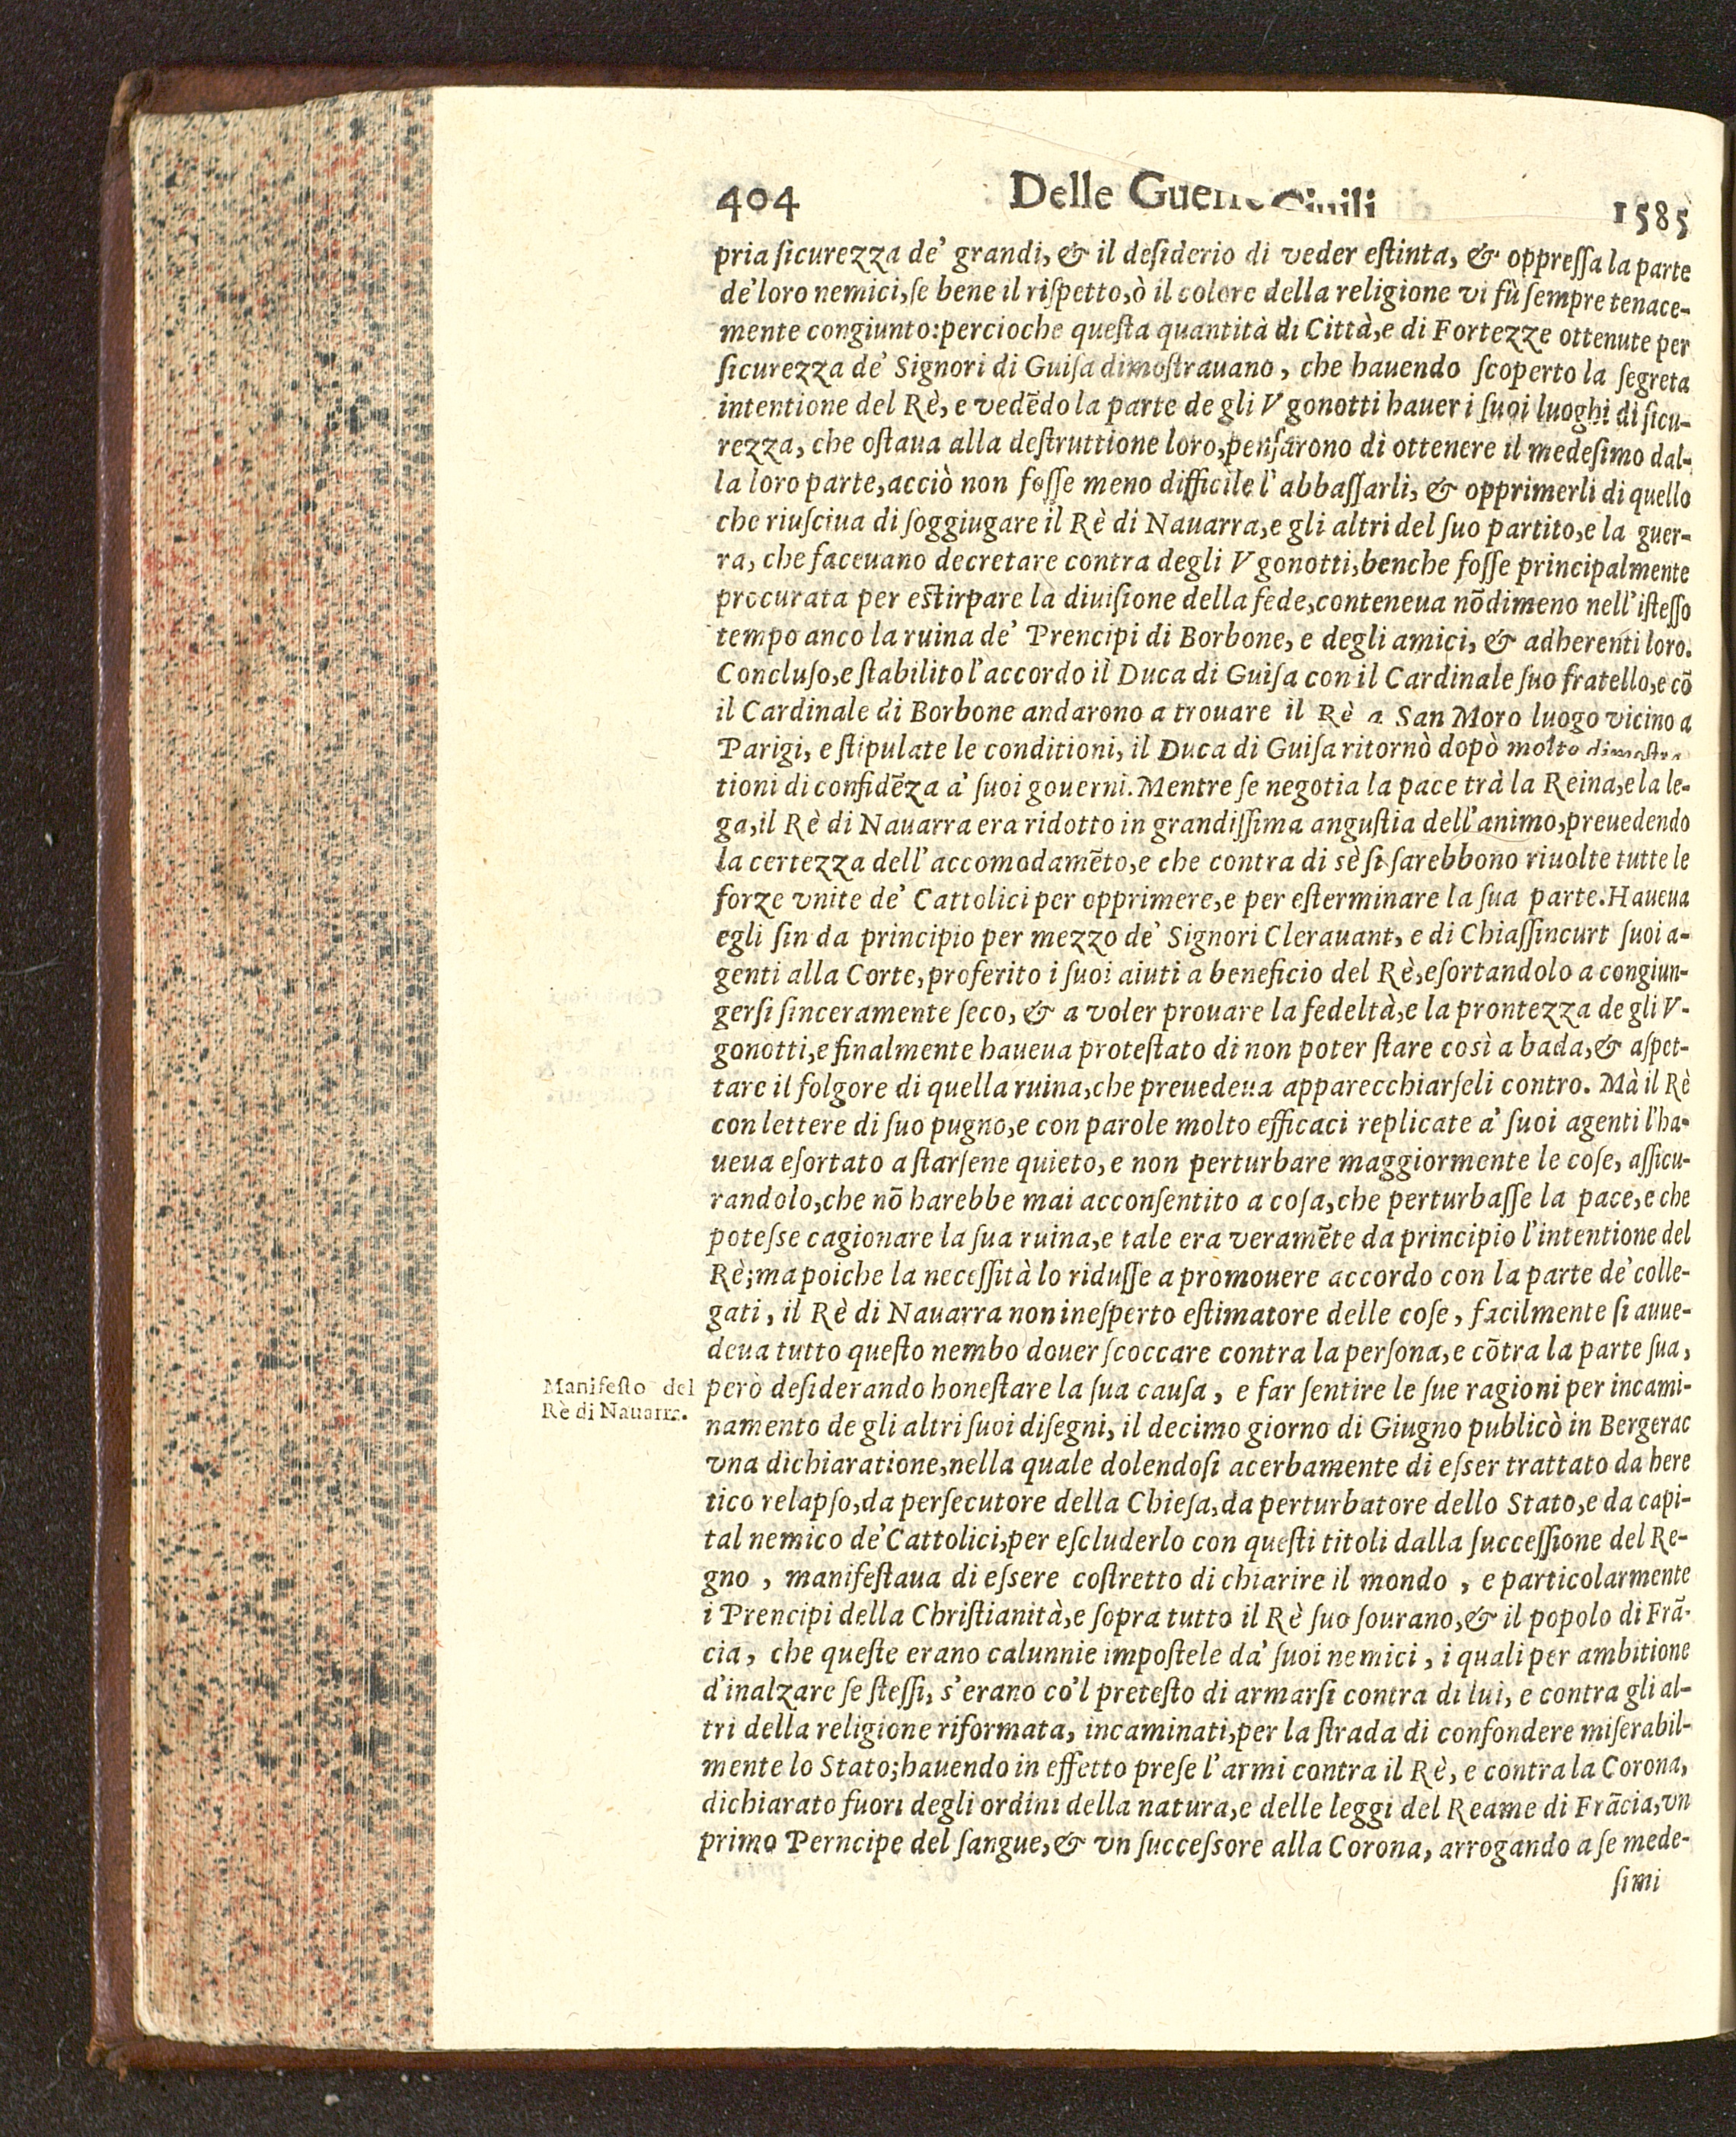 404 Delle Guerre Ciuili 1585
pria ſicurezza de' grandi, & il deſiderio di veder eſtinta, & oppreſſa la parte
de' loro nemici, ſe bene il riſpetto, ò il colore della religione vi fù ſempre tenace-
mente congiunto: percioche queſta quantità di Città, e di Fortezze ottenute per
ſicurezza de' Signori di Guiſa dimoſtrauano, che hauendo ſcoperto la ſegreta
intentione del Rè, e vedēdo la parte de gli Vgonotti hauer i ſuoi luoghi di ſicu-
rezza, che oſtaua alla deſtruttione loro, penſarono di ottenere il medeſimo dal-
la loro parte, acciò non foſſe meno difficile l'abbaſſarli, & opprimerli di quello
che riuſciua di ſoggiugare il Rè di Nauarra, e gli altri del ſuo partito, e la guer-
ra, che faceuano decretare contra degli Vgonotti, benche foſſe principalmente
procurata per eſtirpare la diuiſione della fede, conteneua nōdimeno nell'iſteſſo
tempo anco la ruina de' Prencipi di Borbone, e degli amici, & adherenti loro.
Concluſo, e ſtabilito l'accordo il Duca di Guiſa con il Cardinale ſuo fratello, e cō
il Cardinale di Borbone andarono a trouare il Rè a San Moro luogo vicino a
Parigi, e ſtipulate le conditioni, il Duca di Guiſa ritornò dopò molto dimoſtra
tioni di confidēza a' ſuoi gouerni. Mentre ſe negotia la pace trà la Reina, e la le-
ga, il Rè di Nauarra era ridotto in grandiſſima anguſtia dell'animo, preuedendo
la certezza dell'accomodamēto, e che contra di sè ſi ſarebbono riuolte tutte le
forze vnite de' Cattolici per opprimere, e per eſterminare la ſua parte. Haueua
egli ſin da principio per mezzo de' Signori Clerauant, e di Chiaſſincurt ſuoi a-
genti alla Corte, proferito i ſuoi aiuti a beneficio del Rè, eſortandolo a congiun-
gerſi ſinceramente ſeco, & a voler prouare la fedeltà, e la prontezza de gli V-
gonotti, e finalmente haueua proteſtato di non poter ſtare così a bada, & aſpet-
tare il folgore di quella ruina, che preuedeua apparecchiarſeli contro. Mà il Rè
con lettere di ſuo pugno, e con parole molto efficaci replicate a' ſuoi agenti l'ha-
ueua eſortato a ſtarſene quieto, e non perturbare maggiormente le coſe, aſſicu-
randolo, che nō harebbe mai acconſentito a coſa, che perturbaſſe la pace, e che
poteſse cagionare la ſua ruina, e tale era veramēte da principio l'intentione del
Rè; ma poiche la neceſſità lo riduſſe a promouere accordo con la parte de' colle-
gati, il Rè di Nauarra non ineſperto eſtimatore delle coſe, facilmente ſi auue-
deua tutto queſto nembo douer ſcoccare contra la perſona, e cōtra la parte ſua,
Manifeſto del
Rè di Nauarra.
però deſiderando honeſtare la ſua cauſa, e far ſentire le ſue ragioni per incami-
namento de gli altri ſuoi diſegni, il decimo giorno di Giugno publicò in Bergerac
vna dichiaratione, nella quale dolendoſi acerbamente di eſser trattato da here
tico relapſo, da perſecutore della Chieſa, da perturbatore dello Stato, e da capi-
tal nemico de' Cattolici, per eſcluderlo con queſti titoli dalla ſucceſſione del Re-
gno, manifeſtaua di eſsere coſtretto di chiarire il mondo, e particolarmente
i Prencipi della Chriſtianità, e ſopra tutto il Rè ſuo ſourano, & il popolo di Frā-
cia, che queſte erano calunnie impoſtele da' ſuoi nemici, i quali per ambitione
d'inalzare ſe ſteſſi, s'erano co'l preteſto di armarſi contra di lui, e contra gli al-
tri della religione riformata, incaminati, per la ſtrada di confondere miſerabil-
mente lo Stato; hauendo in effetto preſe l'armi contra il Rè, e contra la Corona,
dichiarato fuori degli ordini della natura, e delle leggi del Reame di Frācia, vn
primo Perncipe del ſangue, & vn ſucceſsore alla Corona, arrogando a ſe mede-
ſimi